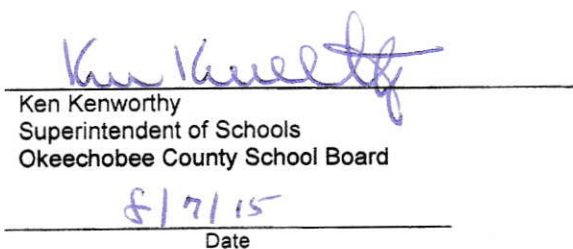 Ken Kenworthy
Ken Kenworthy
Superintendent of Schools
Okeechobee County School Board
8/7/15
Date